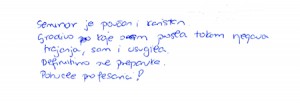 Seminar je poučan i koristan.
Gradivo koje sam prošla tokom njegova
trajanja, sam i usvojila.
Definitivno za preporuke.
Pohvale profesorici!